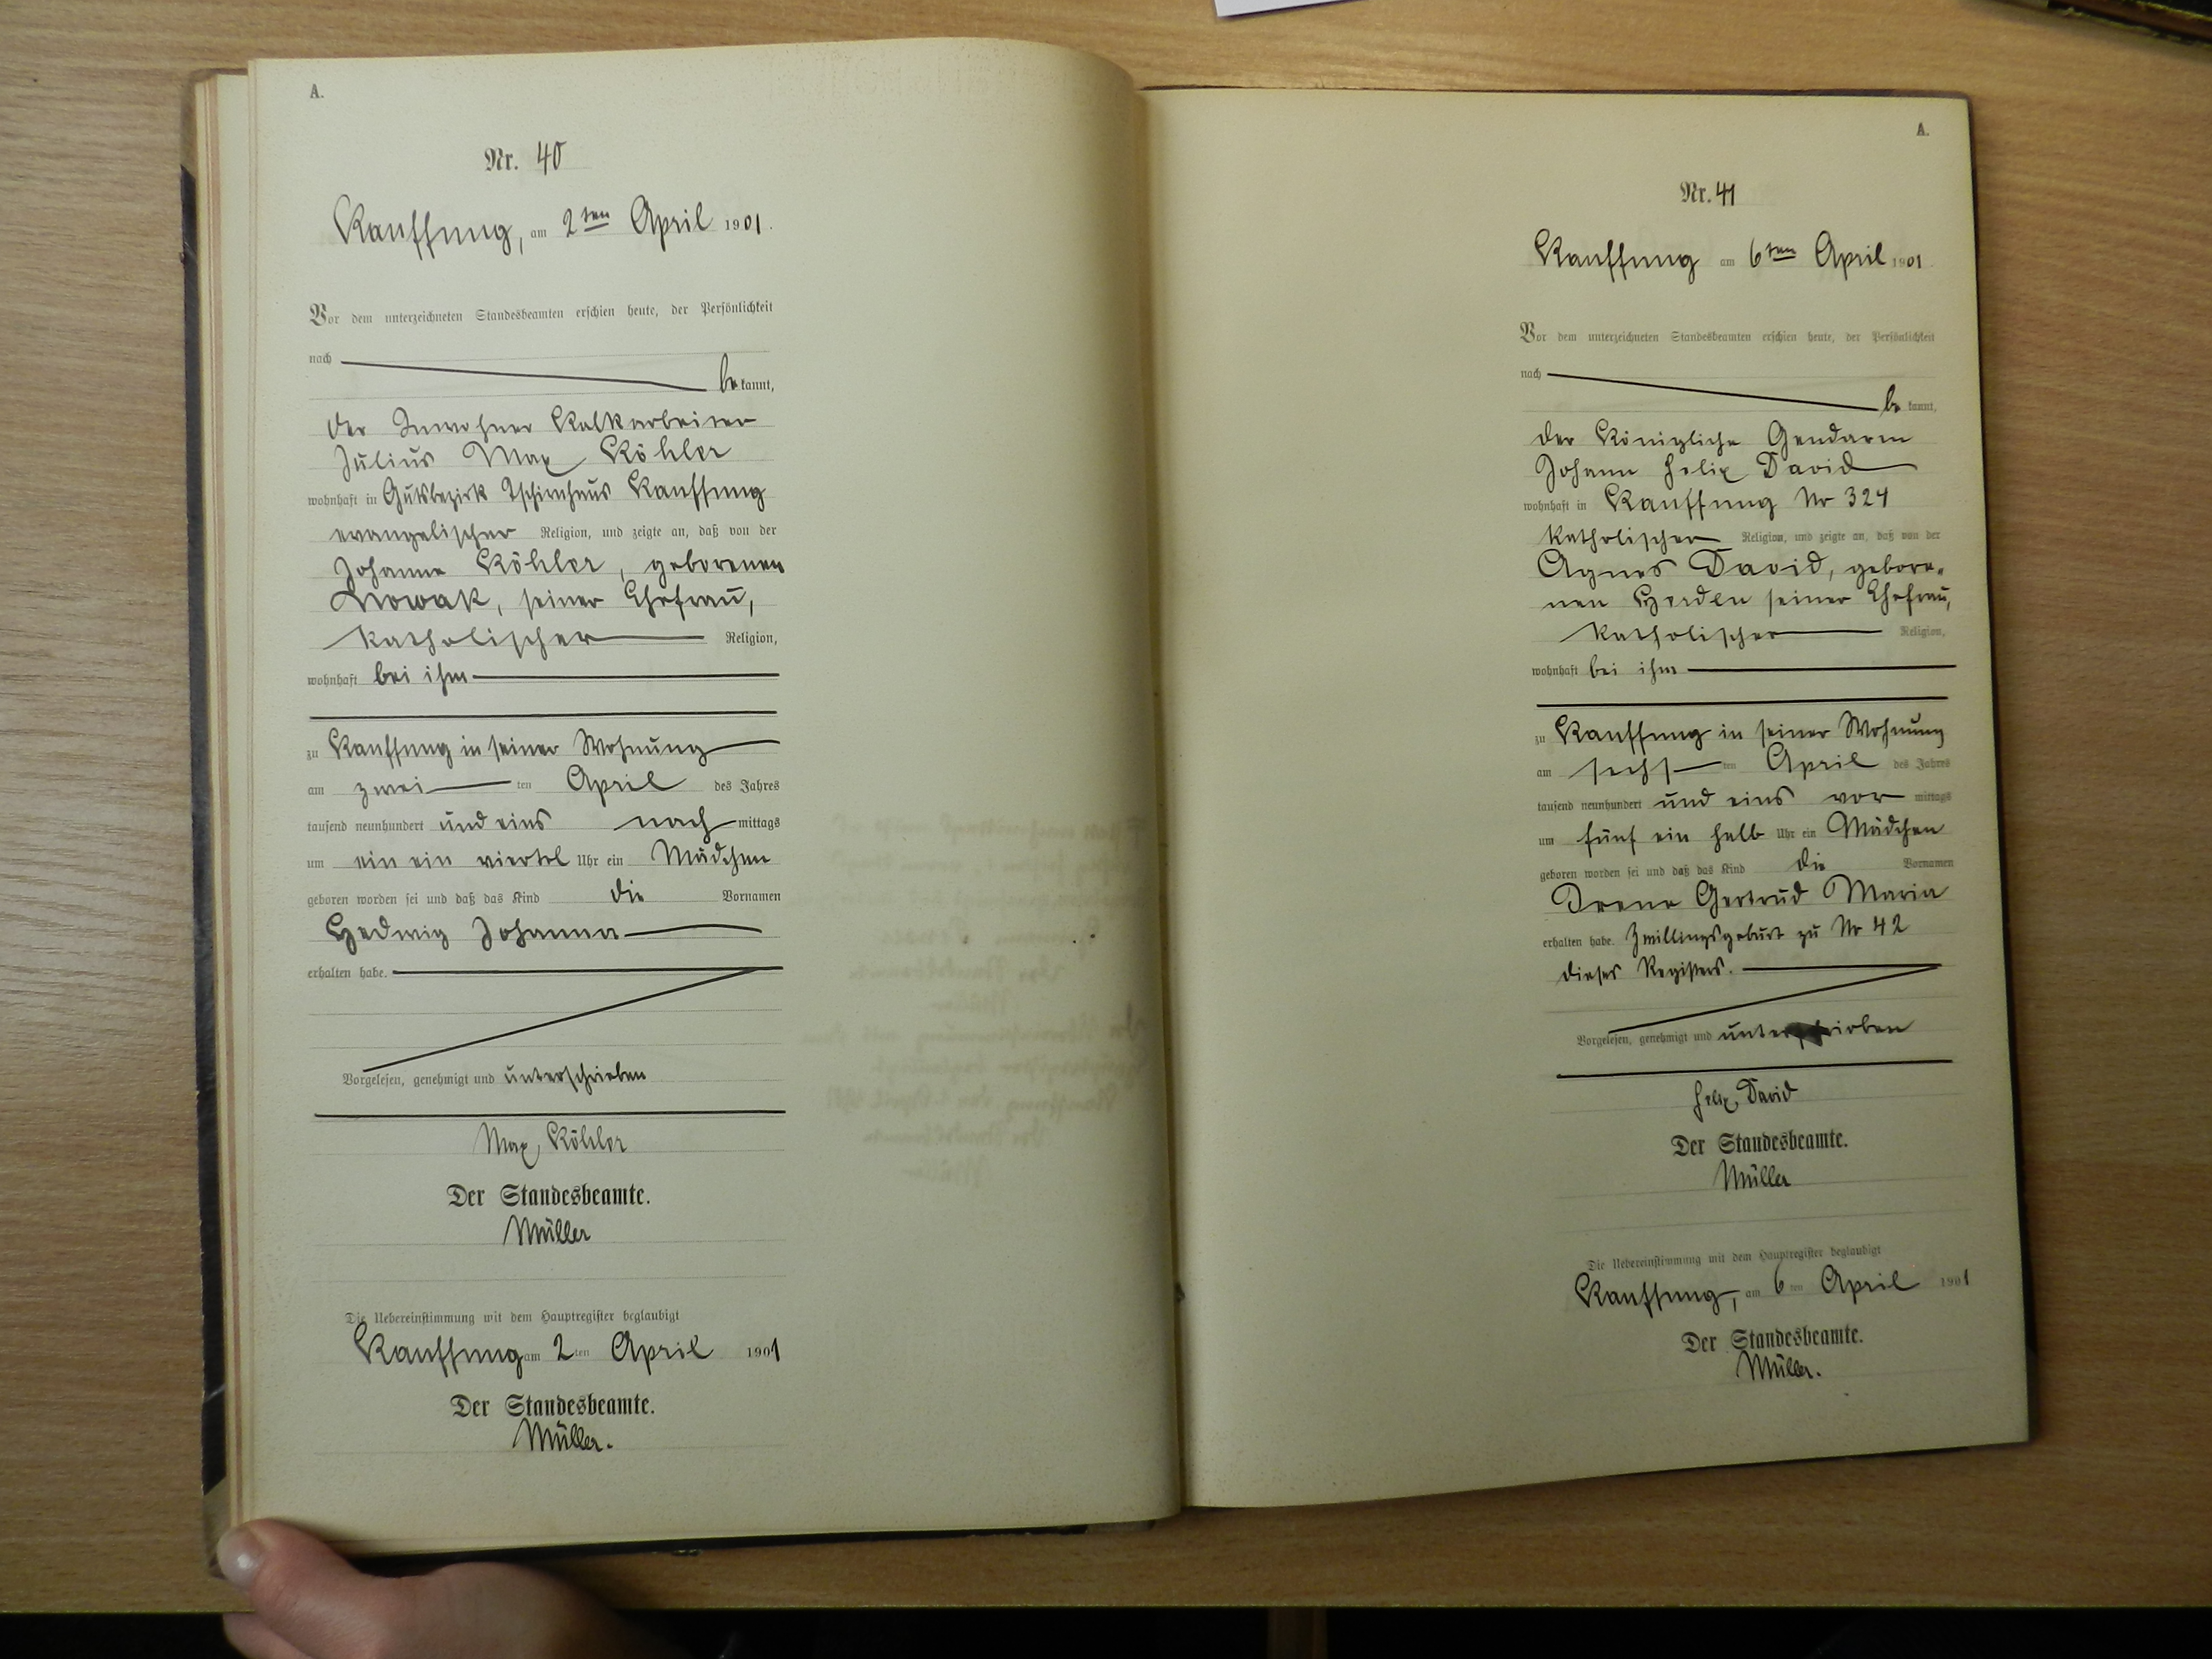 A.
Nr. 40
Kauffung, am 2ten April 1901.
Vor dem unterzeichneten Standesbeamten erschien heute, der Persönlichkeit
nach
be kannt,
der Inwohner Kalkarbeiter
Julius Max Köhler
wohnhaft in Gutsbezirk Tschirnhaus Kauffung
evangelischer Religion, und zeigte an, daß von der
Johanna Köhler, geborenen
Nowak, seiner Ehefrau,
katholischer Religion,
wohnhaft bei ihm
zu Kauffung in seiner Wohnung
am zwei ten April des Jahres
tausend neunhundert und eins nach mittags
um ein ein viertel Uhr ein Mädchen
geboren worden sei und daß das Kind die Vornamen
Hedwig Johanna
erhalten habe.
Vorgelesen, genehmigt und unterschrieben
Max Köhler
Der Standesbeamte.
Müller
Die Uebereinstimmung mit dem Hauptregister beglaubigt
Kauffung am 2 ten April 1901
Der Standesbeamte.
Müller.
A.
Nr. 41
Kauffung am 6ten April 1901.
Vor dem unterzeichneten Standesbeamten erschien heute, der Persönlichkeit
nach
be kannt,
der Königliche Gendarm
Johann Felix David
wohnhaft in Kauffung Nr 324
katholischer Religion, und zeigte an, daß von der
Agnes David, gebore-
nen Herden seiner Ehefrau,
katholischer Religion,
wohnhaft bei ihm
zu Kauffung in seiner Wohnung
am sechs ten April des Jahres
tausend neunhundert und eins vor mittags
um fünf ein halb Uhr ein Mädchen
geboren worden sei und daß das Kind die Vornamen
Irene Gertrud Maria
erhalten habe. Zwillingsgeburt zu Nr 42
dieses Registers.
Vorgelesen, genehmigt und unterschrieben
Felix David
Der Standesbeamte.
Müller
Die Uebereinstimmung mit dem Hauptregister beglaubigt
Kauffung, am 6 ten April 1901
Der Standesbeamte.
Müller.